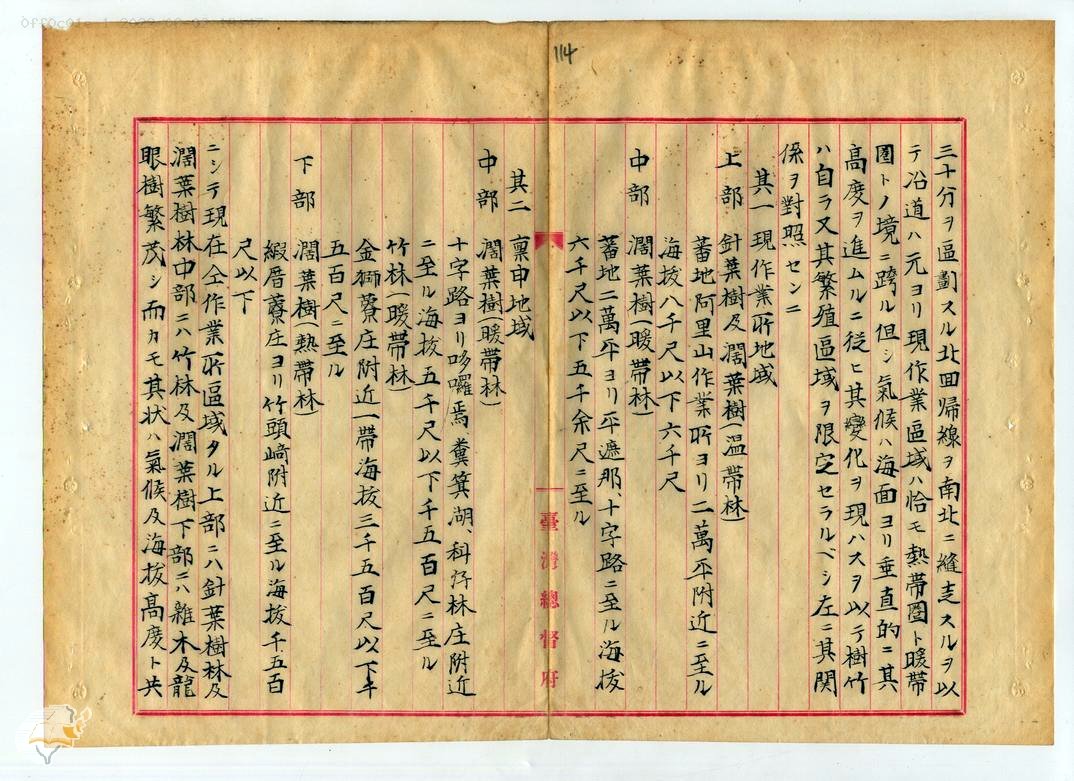 114
三十分ヲ區劃スル北回帰線ヲ南北ニ縫走スルヲ以
テ沿道ハ元ヨリ現作業區域ハ恰モ熱帯圏ト暖帯
圏トノ境ニ跨ル但シ氣候ハ海面ヨリ垂直的ニ其
高度ヲ進ムルニ従ヒ其變化ヲ現ハスヲ以テ樹竹
ハ自ラ又其繁殖區域ヲ限定セラルベシ左ニ其関
係ヲ對照センニ
其一 現作業所地域
上部 針葉樹及濶葉樹(温帯林)
蕃地阿里山作業所ヨリ二萬平附近ニ至ル
海拔八千尺以下六千尺
中部 濶葉樹(暖帯林)
蕃地二萬平ヨリ平遮那、十字路ニ至ル海拔
六千尺以下五千余尺ニ至ル
臺灣總督府
其二 稟申地域
中部 濶葉樹(暖帯林)
十字路ヨリ哆囉焉糞箕湖、科仔林庄附近
ニ至ル海拔五千尺以下千五百尺ニ至ル
竹林(暖帯林)
金獅藔庄附近一帯海拔三千五百尺以下千
五百尺ニ至ル
下部 濶葉樹(熱帯林)
緞厝藔庄ヨリ竹頭﨑附近ニ至ル海拔千五百
尺以下
ニシテ現在仝作業所區域タル上部ニハ針葉樹林及
濶葉樹林中部ニハ竹林及濶葉樹下部ニハ雜木及龍
眼樹繁茂シ而カモ其状ハ氣候及海拔高度ト共